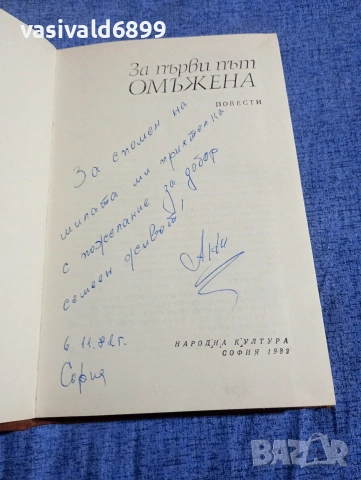 vasivald6899
За първи път
ОМЪЖЕНА
ПОВЕСТИ
За спомен на
милата ми приятелка
с пожелание за добър
семеен живот!
Ани
6.11.82г.
София
НАРОДНА КУЛТУРА
СОФИЯ 1982
BAZAR